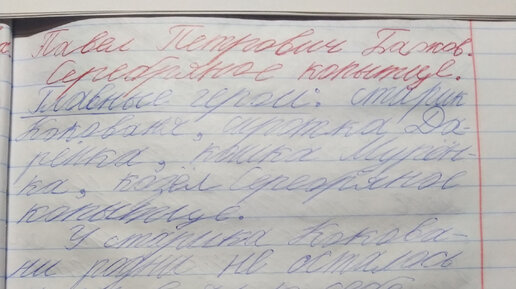 Павел Петрович Бажов.
Серебряное копытце.
Главные герои: старик
Кокованя, сиротка Да-
рёнка, кошка Мурён-
ка, козёл Серебряное
копытце.
У старика Кокова-
ни родни не осталось